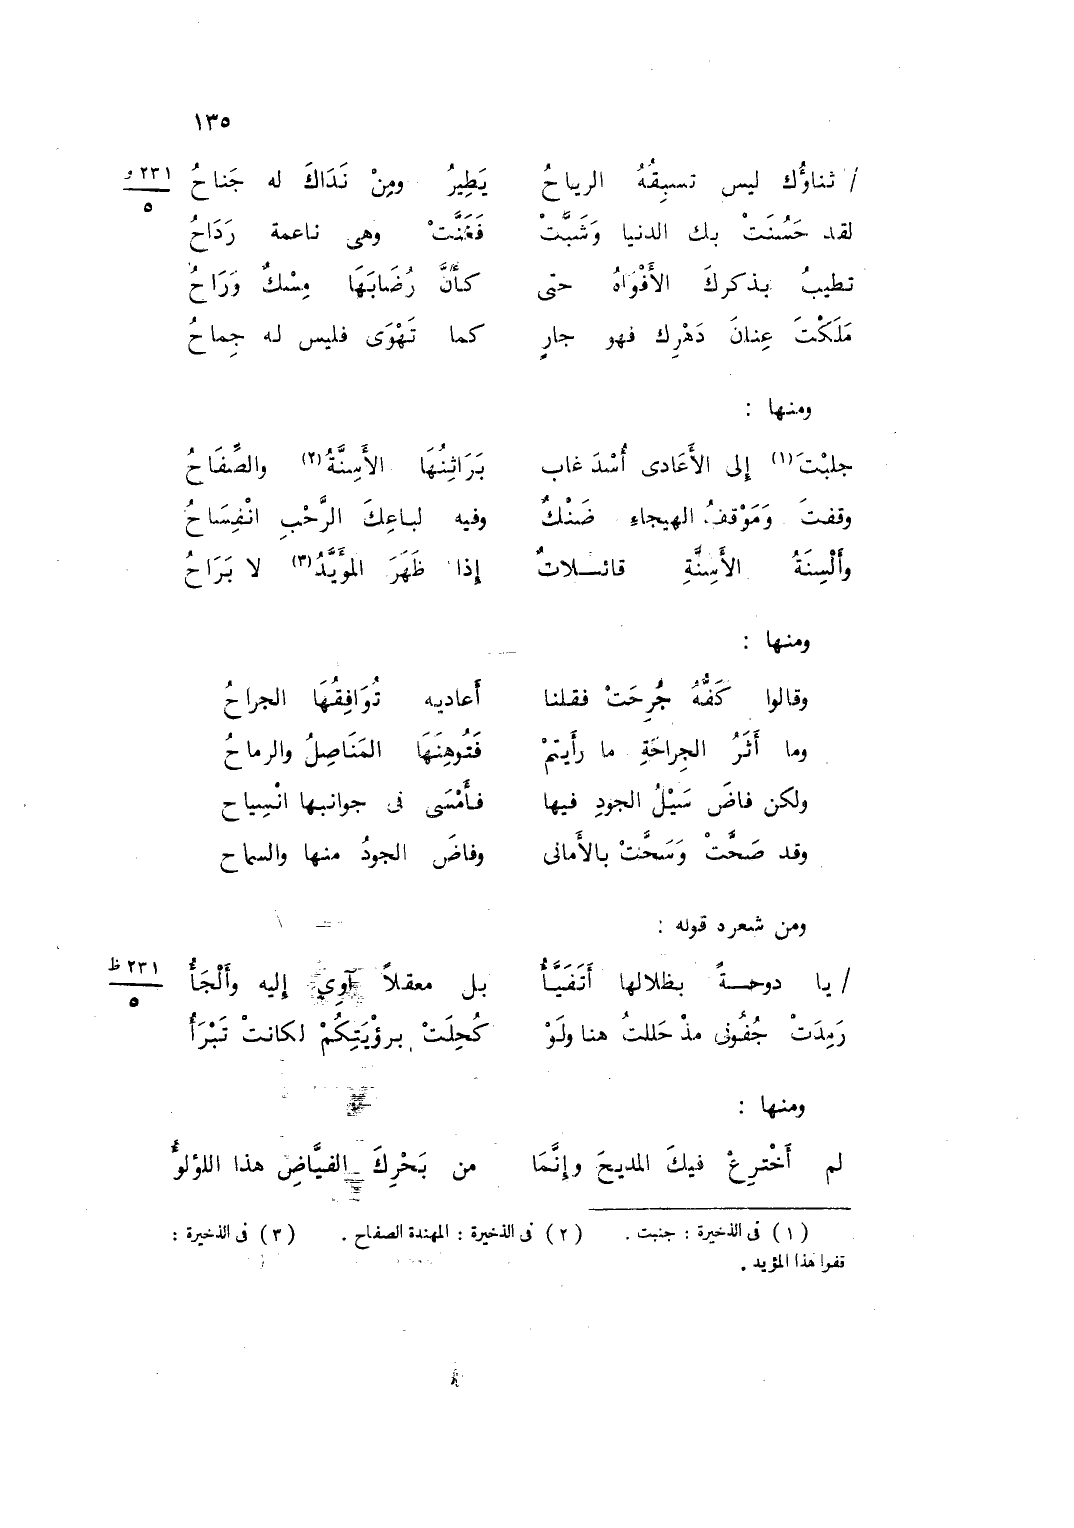 ١٣٥
/ ثناؤُك ليس تسبِقُهُ الرياحُ يَطِيرُ ومِنْ نَدَاكَ له جَناحُ ٢٣١ و
٥
لقد حَسُنَتْ بك الدنيا وَشَبَّتْ فَغَنَّتْ وهى ناعمة رَدَاحُ
تطيبُ بذكركَ الأَفْوَاهُ حتى كأَنَّ رُضَابَهَا مِسْكٌ وَرَاحُ
مَلَكْتَ عِنانَ دَهْرِك فهو جارٍ كما تَهْوَى فليس له جِماحُ
ومنها :
جلبْتَ(١) إلى الأَعَادى أُسْدَ غاب بَرَاثِنُهَا الأَسِنَّةُ(٢) والصِّفَاحُ
وقفتَ وَمَوْقفُ الهيجاءِ ضَنْكٌ وفيه لباعِكَ الرَّحْبِ انْفِسَاحُ
وأَلْسِنَةُ الأَسِنَّةِ قائــلاتٌ إذا ظَهَرَ المؤَيَّدُ(٣) لا بَرَاحُ
ومنها :
وقالوا كَفُّهُ جُرِحَتْ فقلنا أَعاديه تُوَافِقُهَا الجراحُ
وما أَثَرُ الجِراحَةِ ما رأَيتمْ فَتُوهِنَهَا المَنَاصِلُ والرماحُ
ولكن فاضَ سَيْلُ الجودِ فيها فأَمْسَى فى جوانبها انْسِياح
وقد صَحَّتْ وَسَحَّتْ بالأَمانى وفاضَ الجودُ منها والسماح
ومن شعره قوله :
/ يا دوحــةً بظلالها أَتَفَيَّأُ بل معقلاً آوِى إليه وأَلْجَأُ ٢٣١ ظ
٥
رَمِدَتْ جُفُونى مذْ حَللتُ هنا ولَوْ كُحِلَتْ برؤْيَتِكُمْ لكانتْ تَبْرَأُ
ومنها :
لم أَخْترِعْ فيكَ المديحَ وإنَّمَا من بَحْرِكَ الفيَّاضِ هذا اللؤلؤُ
(١) فى الذخيرة : جنبت . (٢) فى الذخيرة : المهندة الصفاح . (٣) فى الذخيرة :
قفوا هذا المؤيد .